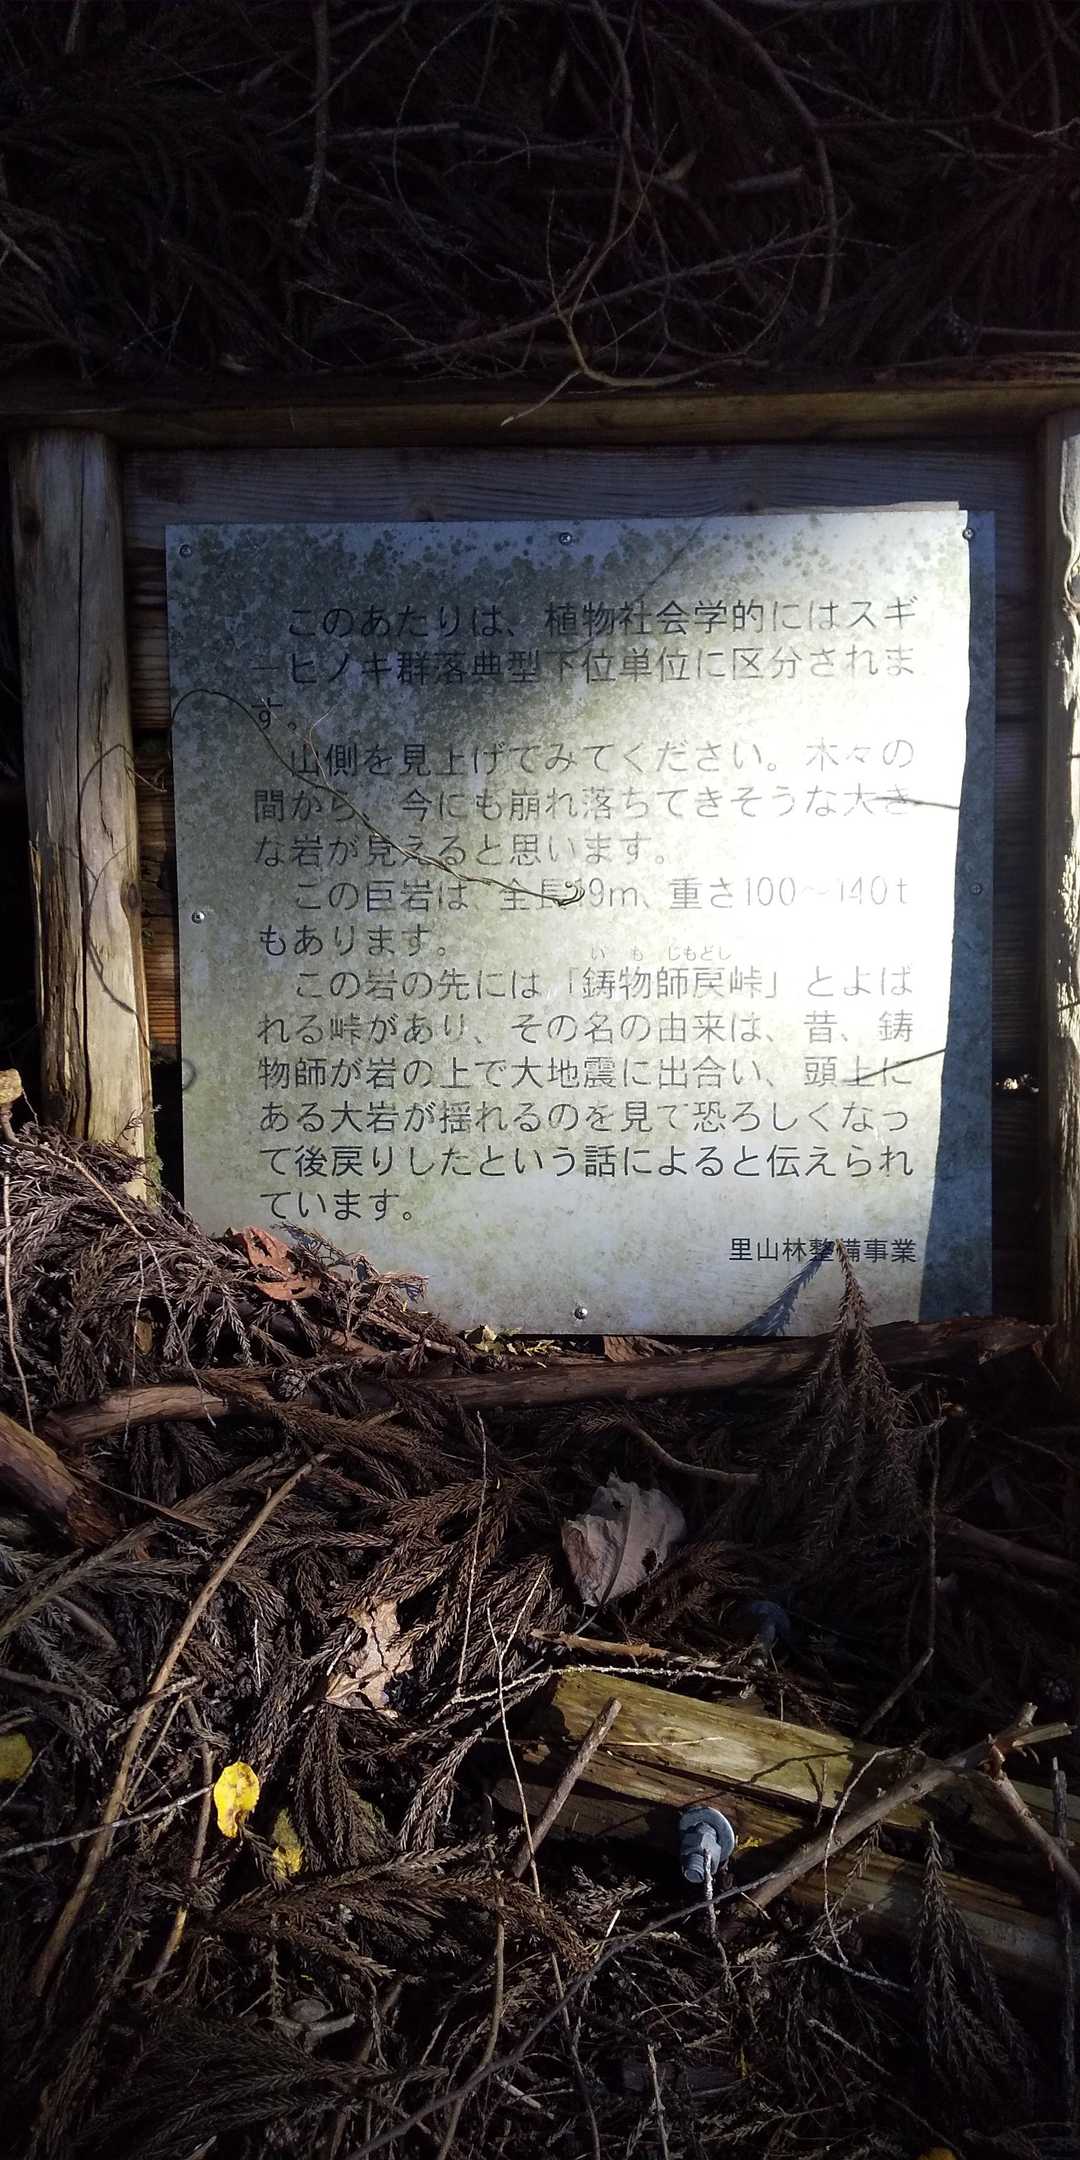 このあたりは、植物社会学的にはスギ
ーヒノキ群落典型下位単位に区分されま
す。
山側を見上げてみてください。木々の
間から、今にも崩れ落ちてきそうな大き
な岩が見えると思います。
この巨岩は 全長19m、重さ100～140t
もあります。
いもじもどし
この岩の先には「鋳物師戻峠」とよば
れる峠があり、その名の由来は、昔、鋳
物師が岩の上で大地震に出合い、頭上に
ある大岩が揺れるのを見て恐ろしくなっ
て後戻りしたという話によると伝えられ
ています。
里山林整備事業